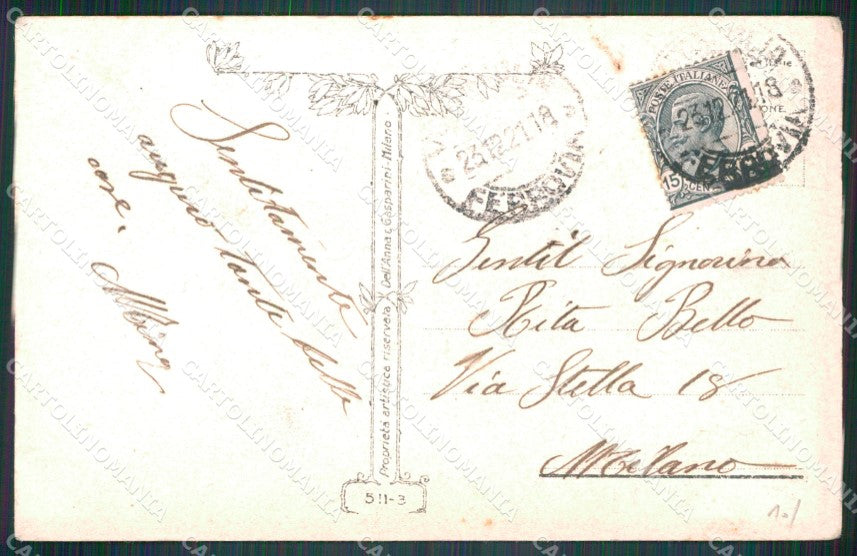 Sentitamente
auguro tante belle
cose.
Proprietà artistica riservata Dell'Anna & Gasparini - Milano
511-3
23.12.21.18
FERROVIA
POSTE ITALIANE
15 CENT
23.12.21.18
FERROVIA
Gentil Signorina
Rita Bello
Via Stella 18
Milano
10/
CARTOLINOMANIA